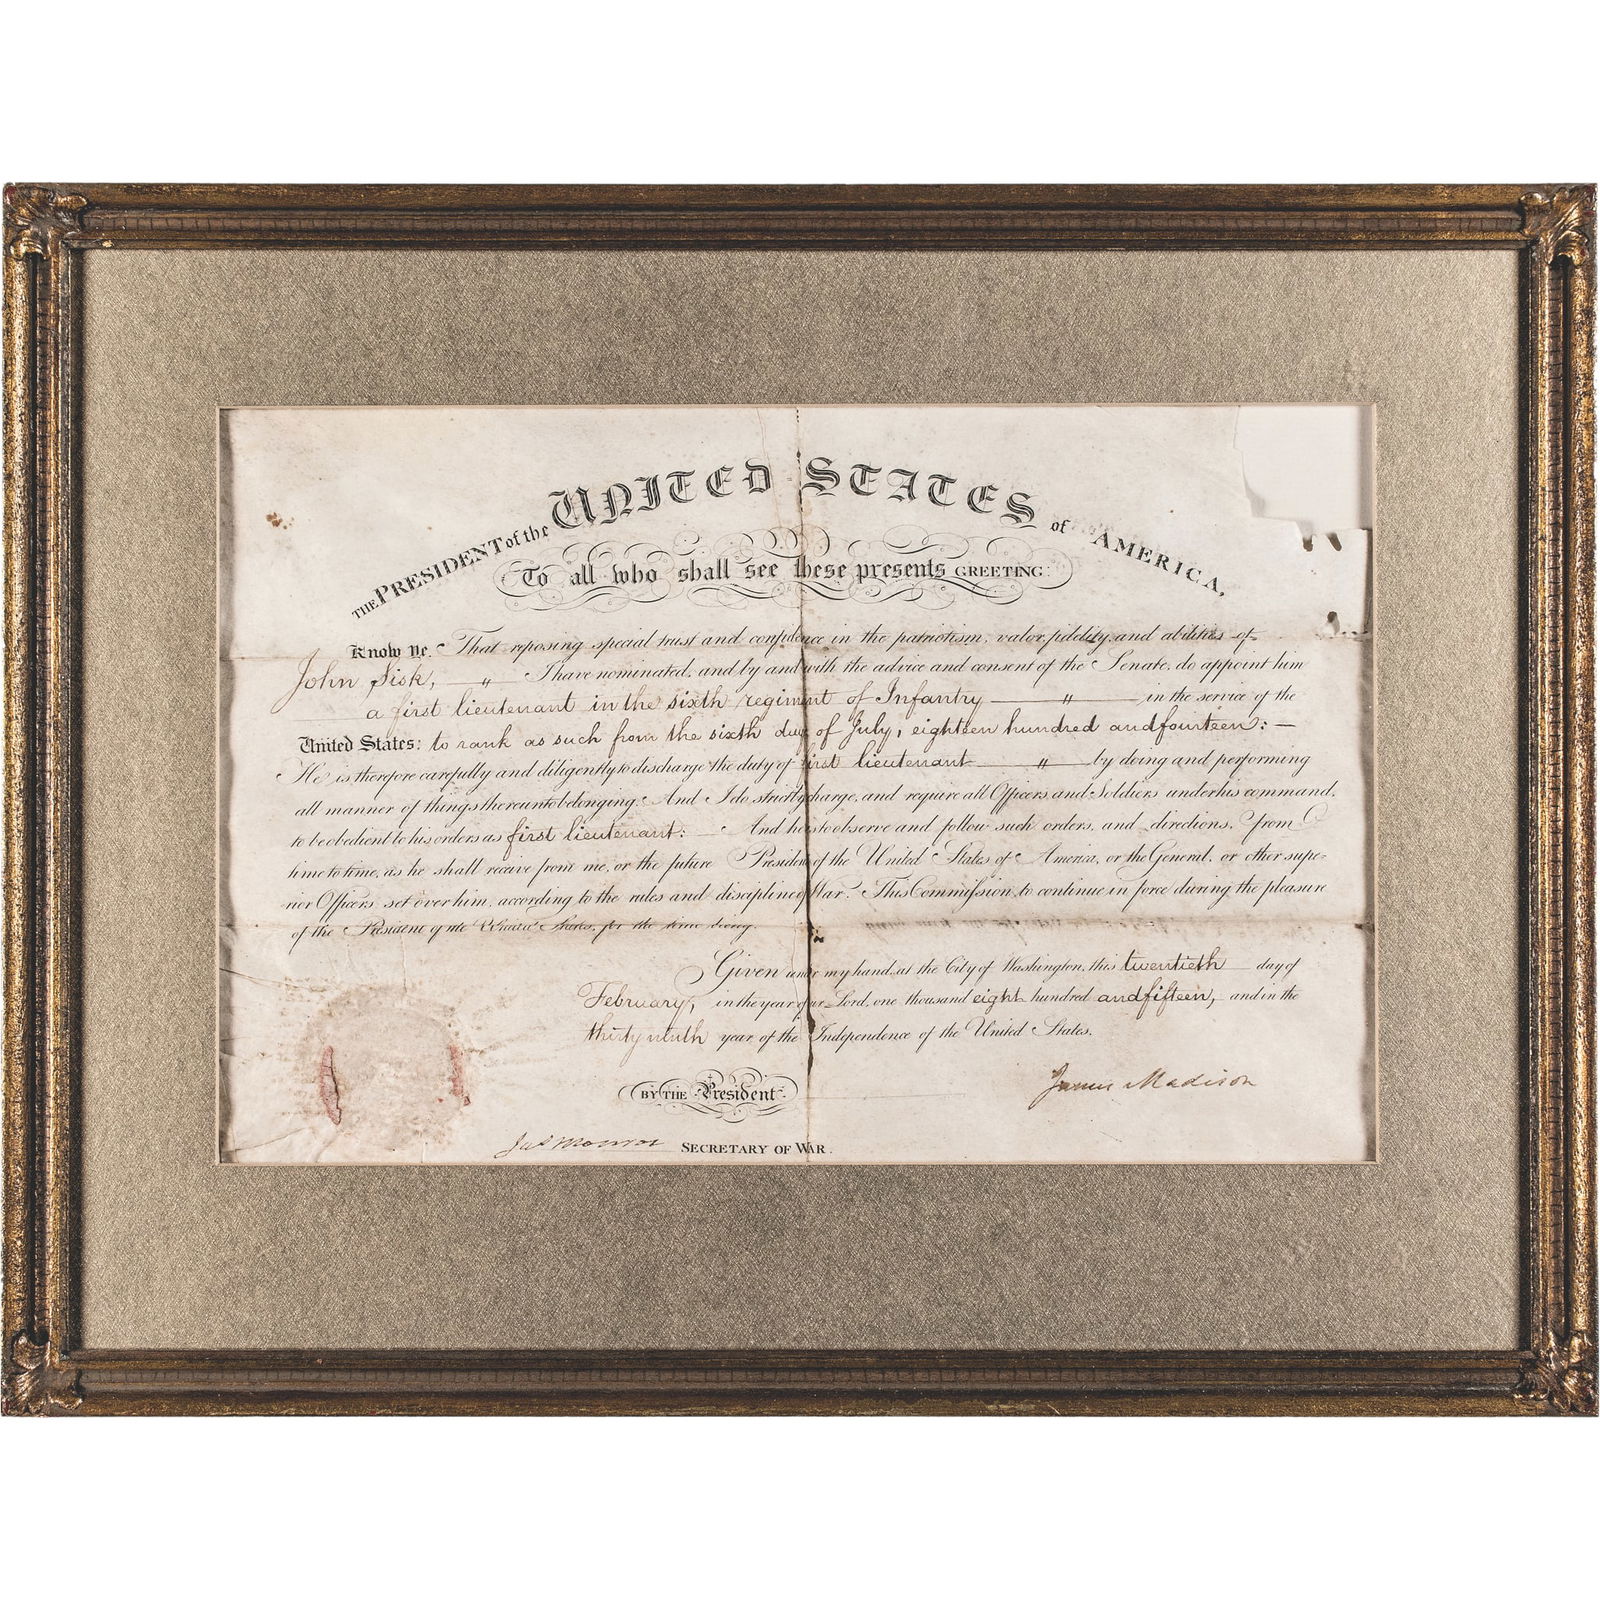 THE PRESIDENT of the UNITED STATES of AMERICA,
To all who shall see these presents GREETING:
Know Ye, That reposing special trust and confidence in the patriotism, valor, fidelity, and abilities of
John Sisk, — " — I have nominated, and by and with the advice and consent of the Senate, do appoint him
a first lieutenant in the sixth regiment of Infantry — " — in the service of the
United States: to rank as such from the sixth day of July, eighteen hundred and fourteen: —
He is therefore carefully and diligently to discharge the duty of first lieutenant — " — by doing and performing
all manner of things thereunto belonging. And I do strictly charge, and require all Officers and Soldiers under his command,
to be obedient to his orders as first lieutenant: — And he is to observe and follow such orders, and directions, from
time to time, as he shall receive from me, or the future President of the United States of America, or the General, or other supe-
rior Officers set over him, according to the rules and discipline of War. This Commission to continue in force during the pleasure
of the President of the United States, for the time being.
Given under my hand, at the City of Washington, this twentieth day of
February, in the year of our Lord, one thousand eight hundred and fifteen, and in the
thirty ninth year of the Independence of the United States.
James Madison
BY THE President
Jas Monroe SECRETARY OF WAR.